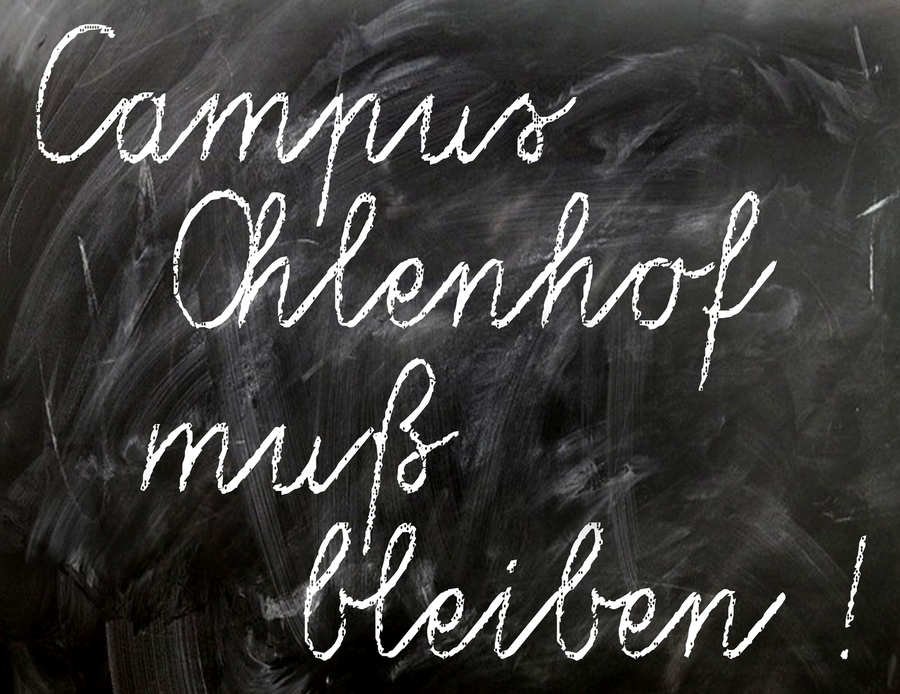 Campus
Ohlenhof
muß
bleiben !